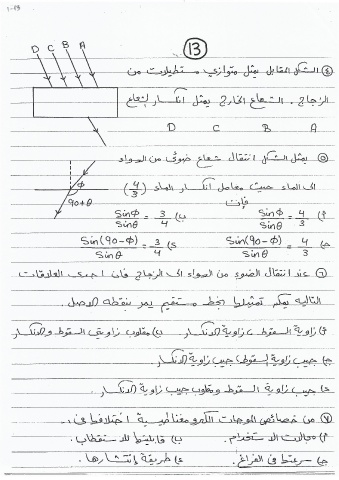 1-13
13
D C B A
④ الشكل المقابل يمثل متوازي مستطيلات من
الزجاج . الشعاع الخارج يمثل انكسار الشعاع
D C B A
⑤ يمثل الشكل انتقال شعاع ضوئي من الهواء
الى الماء حيث معامل انكسار الماء (4/3)
فإن
φ
90+θ
أ) Sinφ/Sinθ = 4/3 ب) Sinφ/Sinθ = 3/4
ج) Sin(90-φ)/Sinθ = 4/3 د) Sin(90-φ)/Sinθ = 3/4
⑥ عند انتقال الضوء من الهواء الى الزجاج فان احدى العلاقات
التاليه يمكن تمثيلها بخط مستقيم يمر بنقطة الاصل.
أ) زاوية السقوط ، زاوية الانكسار ب) مقلوب زاويتي السقوط والانكسار
ج) جيب زاوية السقوط، جيب زاوية الانكسار.
د) جيب زاوية السقوط ومقلوب جيب زاوية الانكسار.
⑦ من خصائص الموجات الكهرومغناطيسية اختلافها في :-
أ) مجالات الاستخدام. ب) قابليتها للاستقطاب.
ج) سرعتها في الفراغ. د) طريقة انتشارها.